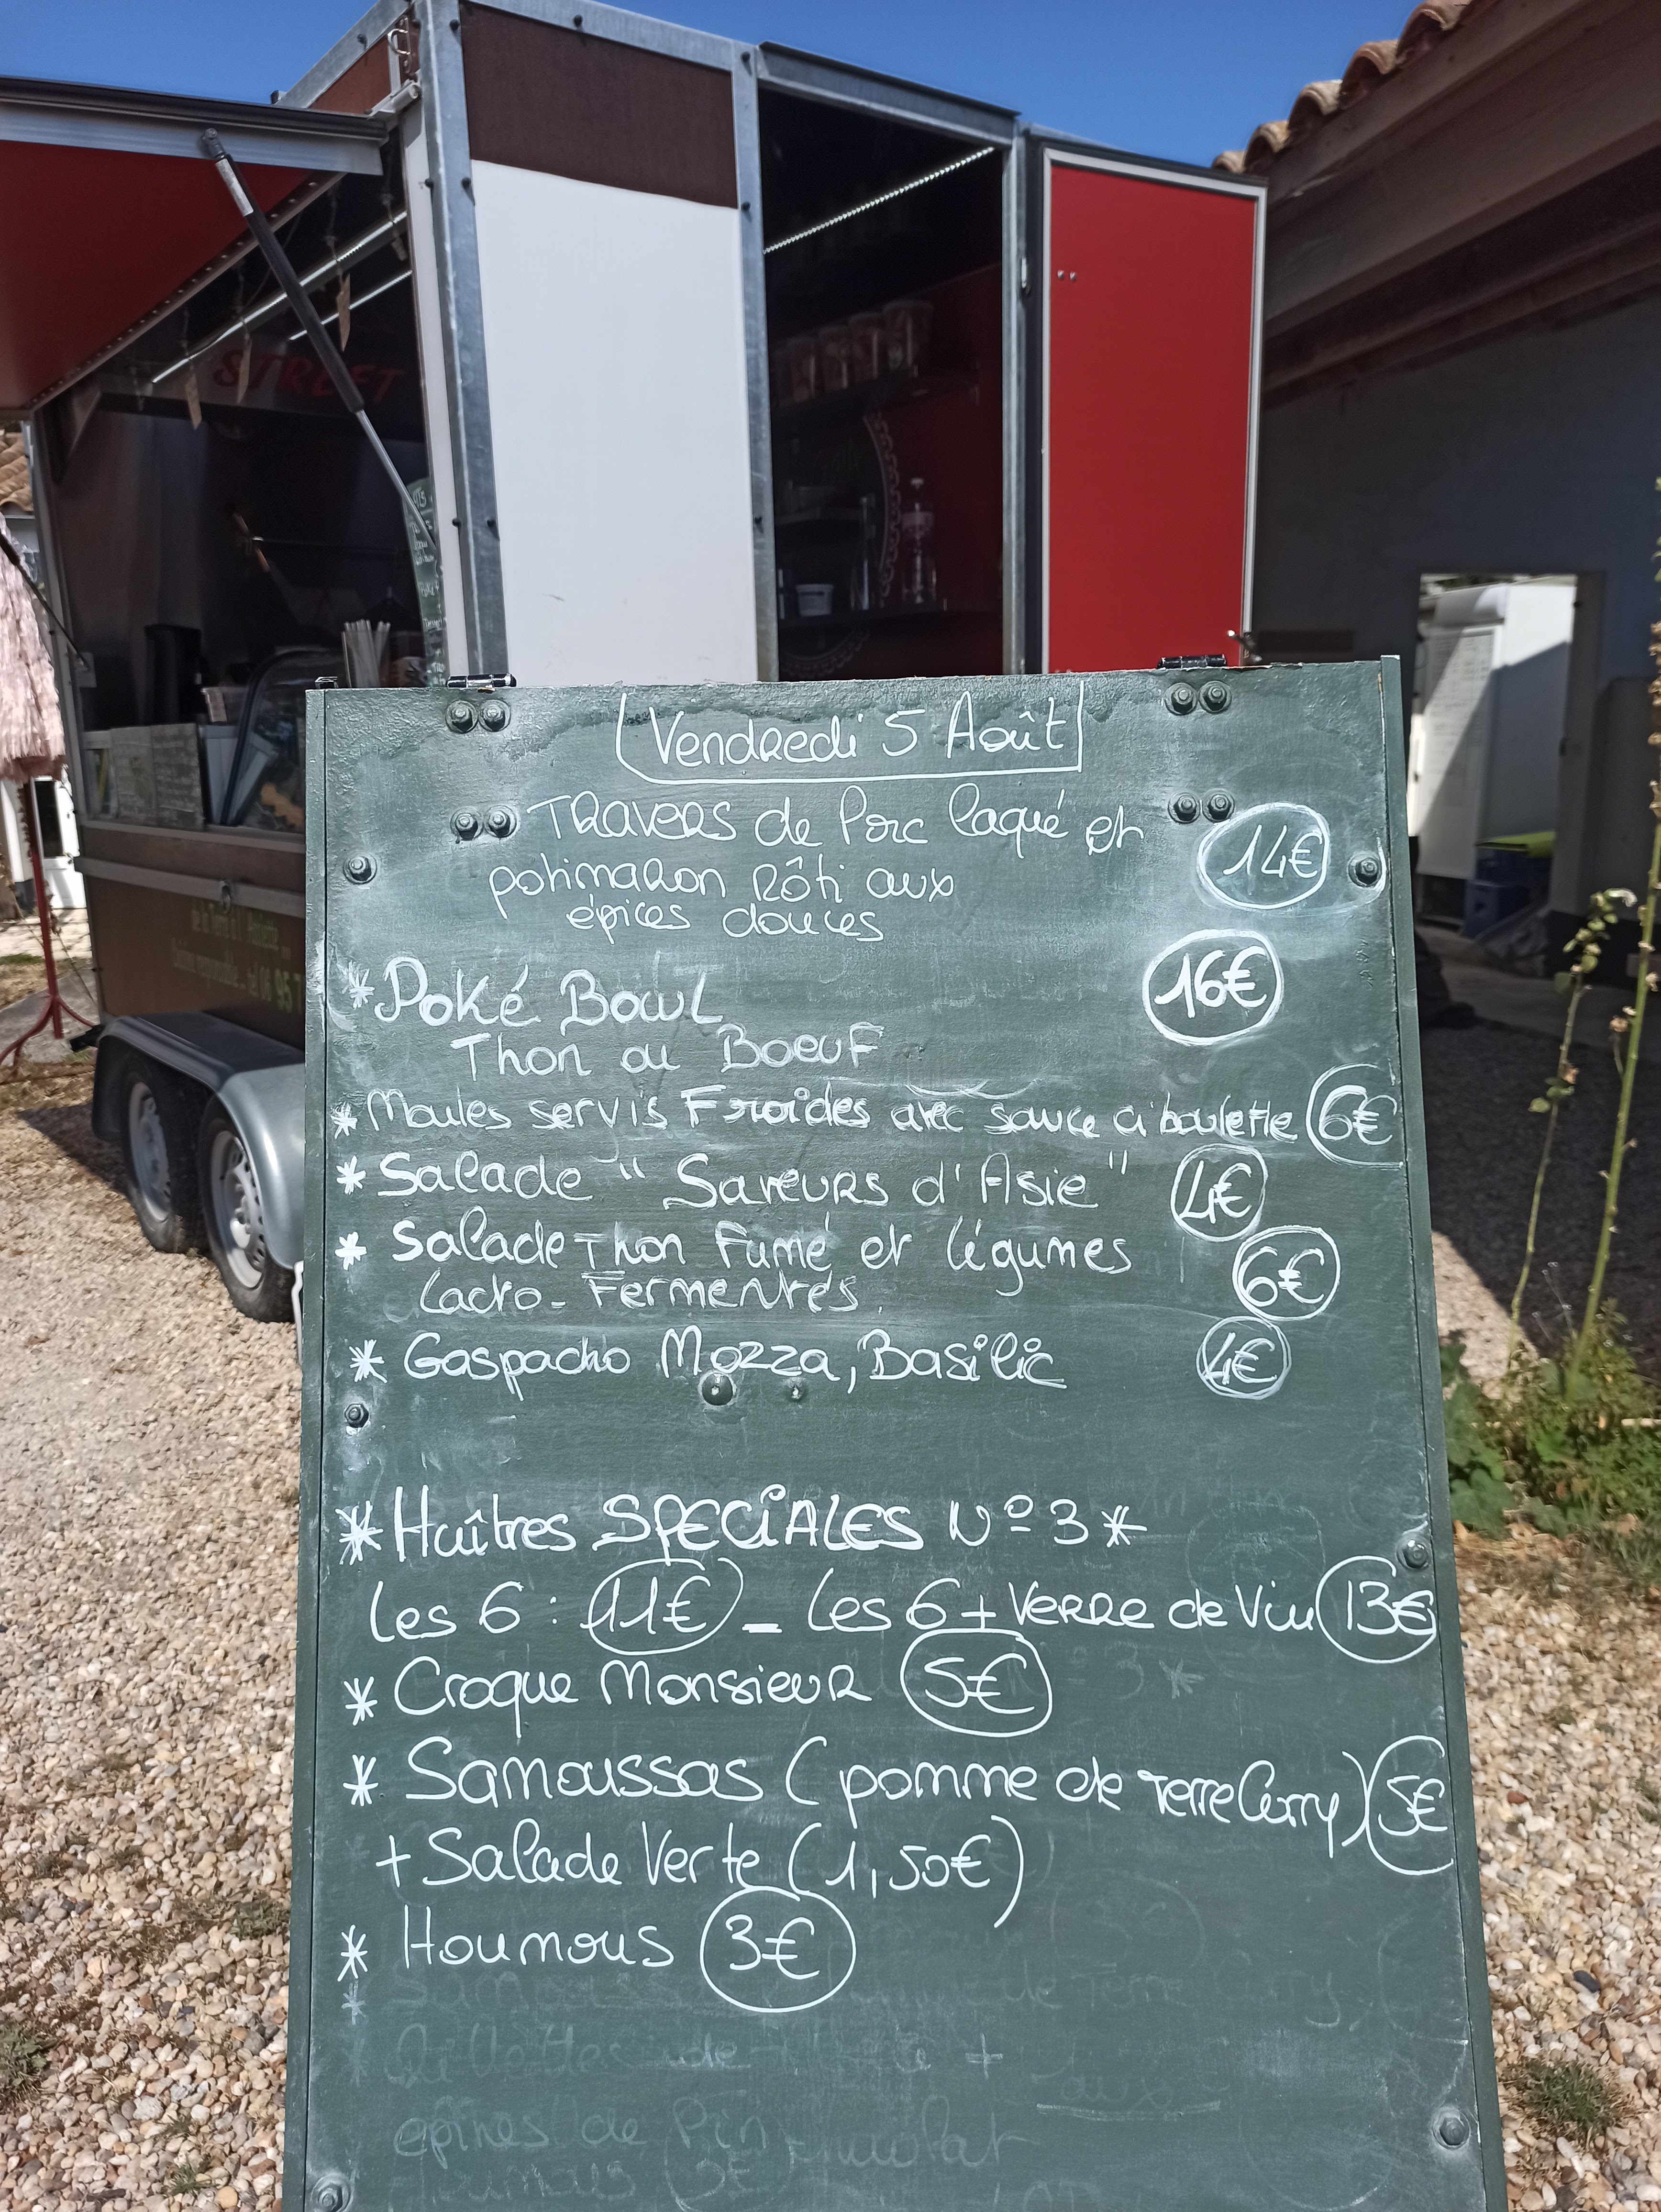 STREET
de la Terre à l'
responsable... tel 06 95 7
Vendredi 5 Août
Travers de Porc laqué et 14€
potimaron Rôti aux
épices douces
*Poké Bowl 16€
Thon ou Boeuf
*Moules servis Froides avec sauce ciboulette 6€
*Salade "Saveurs d'Asie" 4€
*Salade Thon Fumé et légumes 6€
Lacto-Fermentés.
*Gaspacho Mozza, Basilic 4€
*Huîtres SPECIALES N°3*
Les 6 : 11€ - Les 6 + Verre de Vin 13€
*Croque Monsieur 5€
*Samoussas (pomme de Terre Curry) 5€
+ Salade Verte (1,50€)
*Houmous 3€
épines de Pin